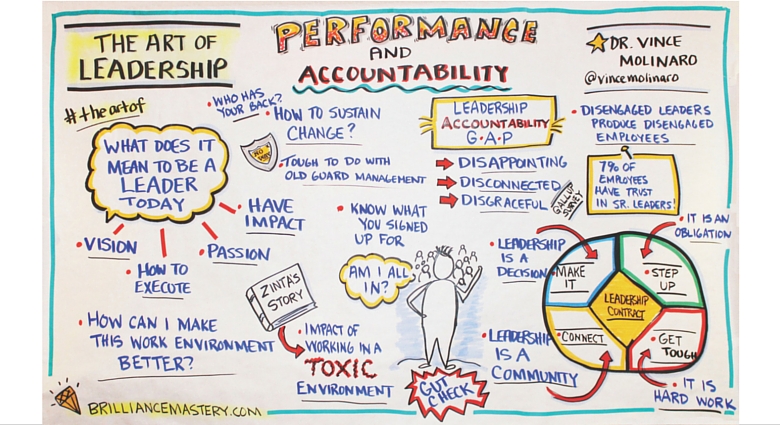 THE ART OF
LEADERSHIP
PERFORMANCE
AND
ACCOUNTABILITY
DR. VINCE
MOLINARO
@vincemolinaro
#theartof
WHAT DOES IT
MEAN TO BE A
LEADER
TODAY
• VISION
• HOW TO
EXECUTE
• PASSION
• HAVE
IMPACT
• HOW CAN I MAKE
THIS WORK ENVIRONMENT
BETTER?
• WHO HAS
YOUR BACK?
• HOW TO SUSTAIN
CHANGE?
• TOUGH TO DO WITH
OLD GUARD MANAGEMENT
• KNOW WHAT
YOU SIGNED
UP FOR
AM I ALL
IN?
ZINTA'S
STORY
• IMPACT OF
WORKING IN A
TOXIC
ENVIRONMENT
GUT
CHECK
LEADERSHIP
ACCOUNTABILITY
G•A•P
DISAPPOINTING
DISCONNECTED
DISGRACEFUL
GALLUP
SURVEY
• DISENGAGED LEADERS
PRODUCE DISENGAGED
EMPLOYEES
7% OF
EMPLOYEES
HAVE TRUST
IN SR. LEADERS!
• LEADERSHIP
IS A
DECISION
• IT IS AN
OBLIGATION
MAKE
IT
• STEP
UP
LEADERSHIP
CONTRACT
CONNECT
• GET
TOUGH
• LEADERSHIP
IS A
COMMUNITY
• IT IS
HARD WORK
BRILLIANCEMASTERY.COM